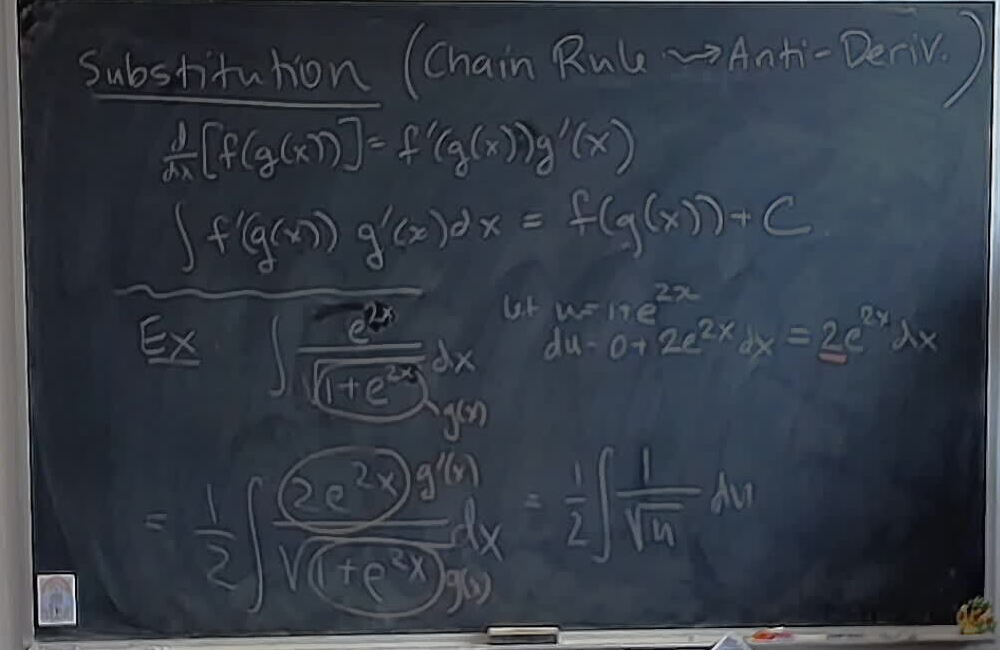 Substitution (Chain Rule ⇝ Anti-Deriv.)
d/dx [f(g(x))] = f'(g(x))g'(x)
∫ f'(g(x)) g'(x)dx = f(g(x)) + C
Ex ∫ e^{2x}/√(1+e^{2x}) dx g(x)
let u = 1+e^{2x}
du = 0 + 2e^{2x} dx = 2e^{2x} dx
= 1/2 ∫ 2e^{2x}/√(1+e^{2x}) dx g'(x) g(x) = 1/2 ∫ 1/√u du